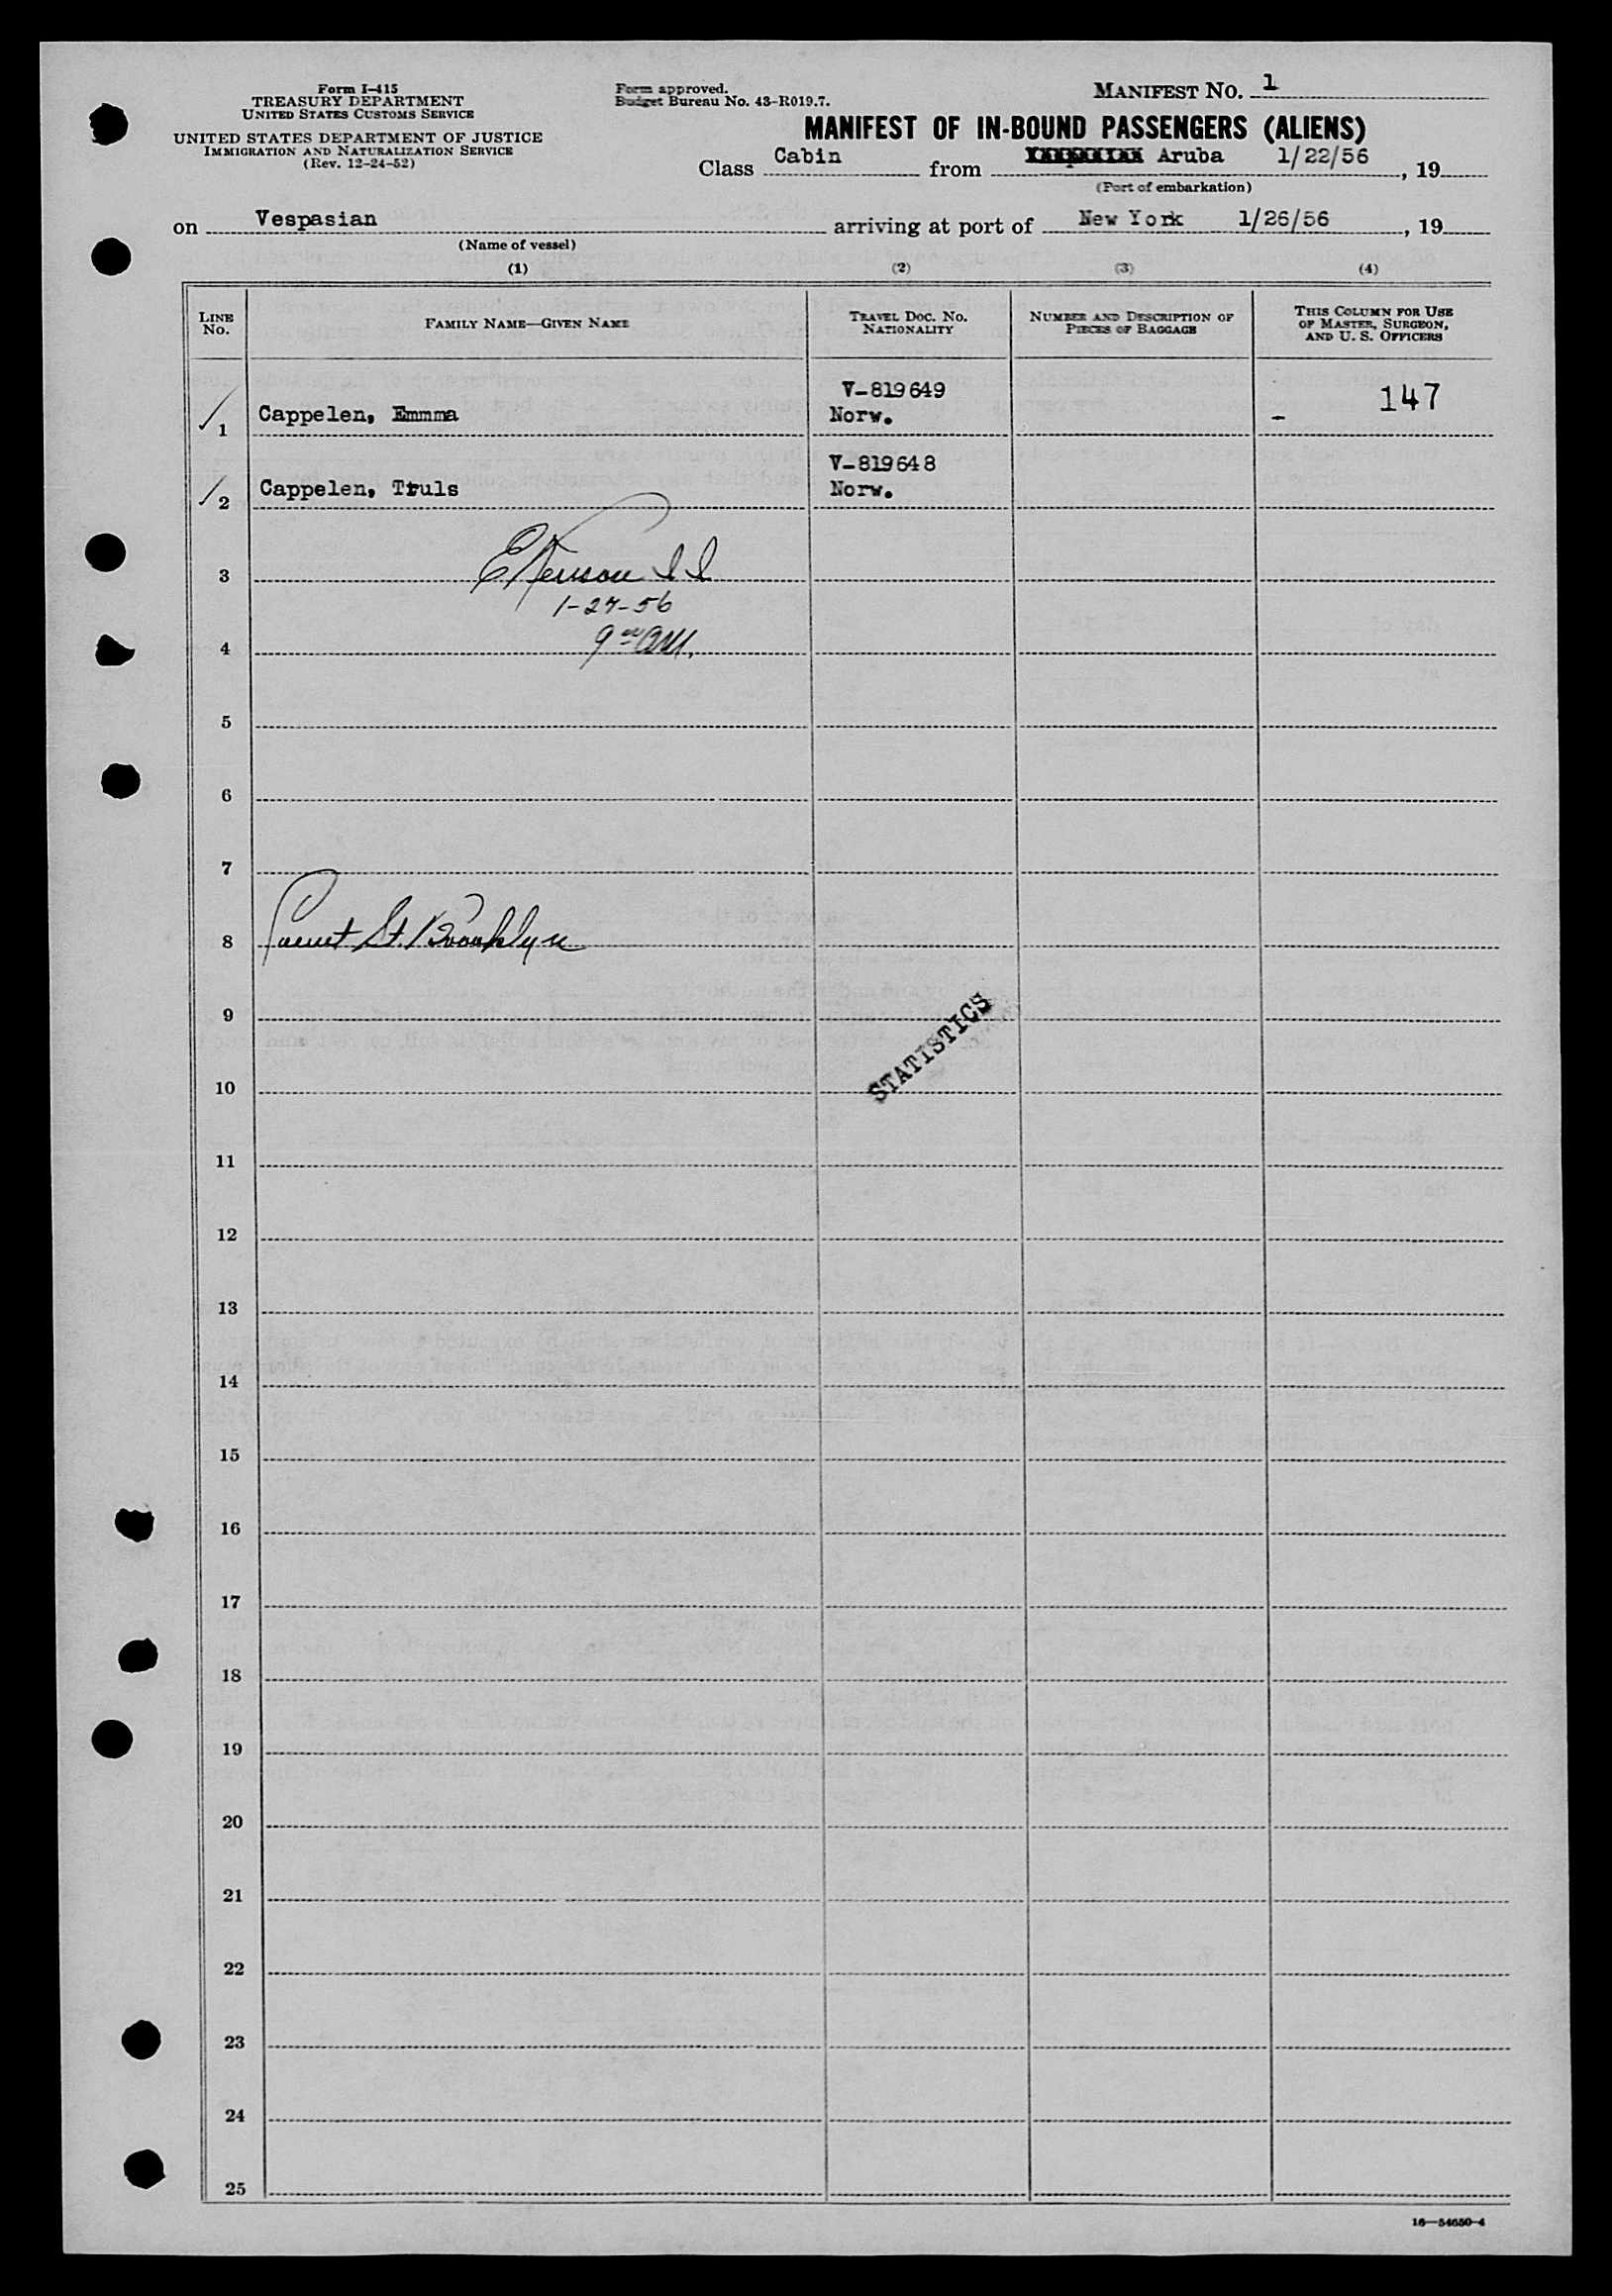 Form I-415
TREASURY DEPARTMENT
UNITED STATES CUSTOMS SERVICE
UNITED STATES DEPARTMENT OF JUSTICE
IMMIGRATION AND NATURALIZATION SERVICE
(Rev. 12-24-52)
Form approved.
Budget Bureau No. 43-R019.7.
MANIFEST NO. 1
MANIFEST OF IN-BOUND PASSENGERS (ALIENS)
Class Cabin from Aruba 1/22/56, 19
(Port of embarkation)
on Vespasian arriving at port of New York 1/26/56, 19
(Name of vessel)
(1) (2) (3) (4)
LINE NO. FAMILY NAME—GIVEN NAME TRAVEL DOC. NO. NATIONALITY NUMBER AND DESCRIPTION OF PIECES OF BAGGAGE THIS COLUMN FOR USE OF MASTER, SURGEON, AND U. S. OFFICERS
V-819649 147
1 Cappelen, Emmma Norw. -
V-819648
2 Cappelen, Truls Norw.
3
1-27-56
4 9 00 AM.
5
6
7
8 St. Brooklyn
9
STATISTICS
10
11
12
13
14
15
16
17
18
19
20
21
22
23
24
25
16—54650-4